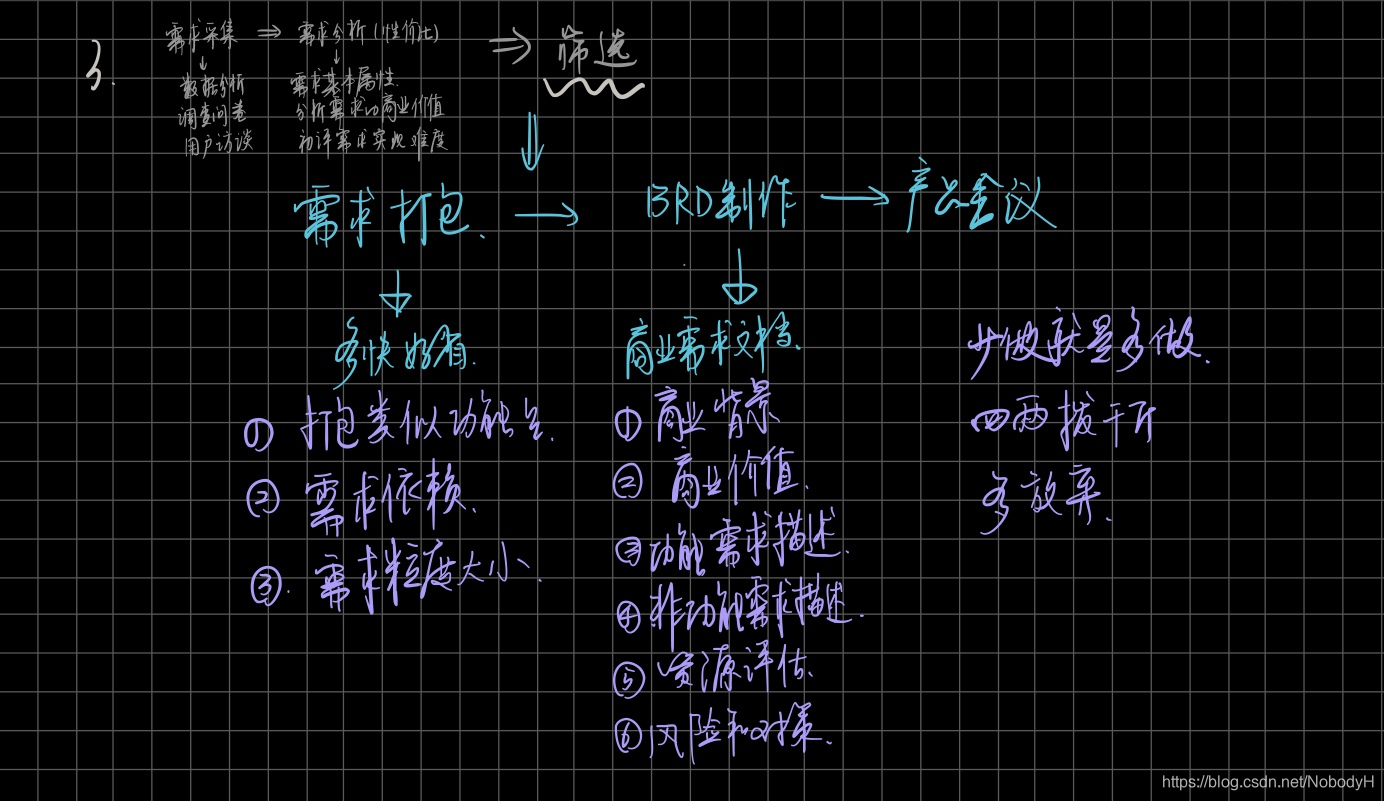 3.
需求采集 ⇒ 需求分析(性价比) ⇒ 筛选
↓ ↓
数据分析 需求基本属性.
调查问卷 分析需求的商业价值
用户访谈 初评需求实现难度
⇓
需求打包. → BRD制作 → 产品会议
↓ ↓
多快好省. 商业需求文档. 少做就是多做.
① 打包类似功能点. ① 商业背景 四两拨千斤
② 需求依赖. ② 商业价值. 多放弃.
③. 需求粒度大小. ③ 功能需求描述.
④ 非功能需求描述.
⑤ 资源评估.
⑥ 风险和对策.
https://blog.csdn.net/NobodyH